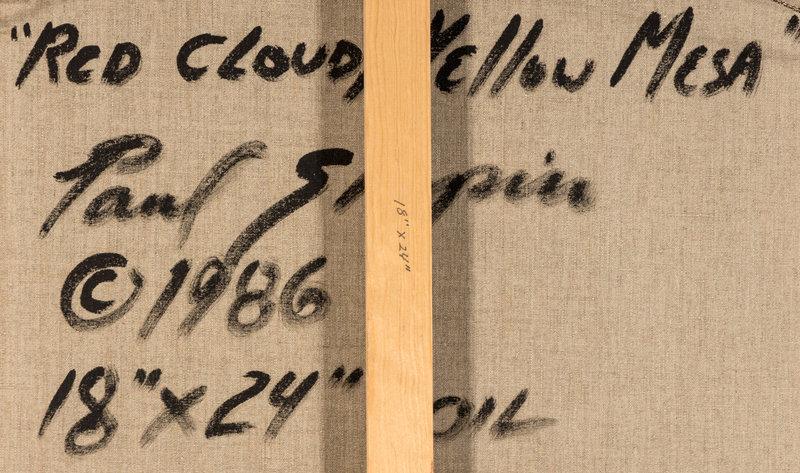 "RED CLOUD, YELLOW MESA"
Paul
© 1986
18" X 24" OIL
18" x 24"